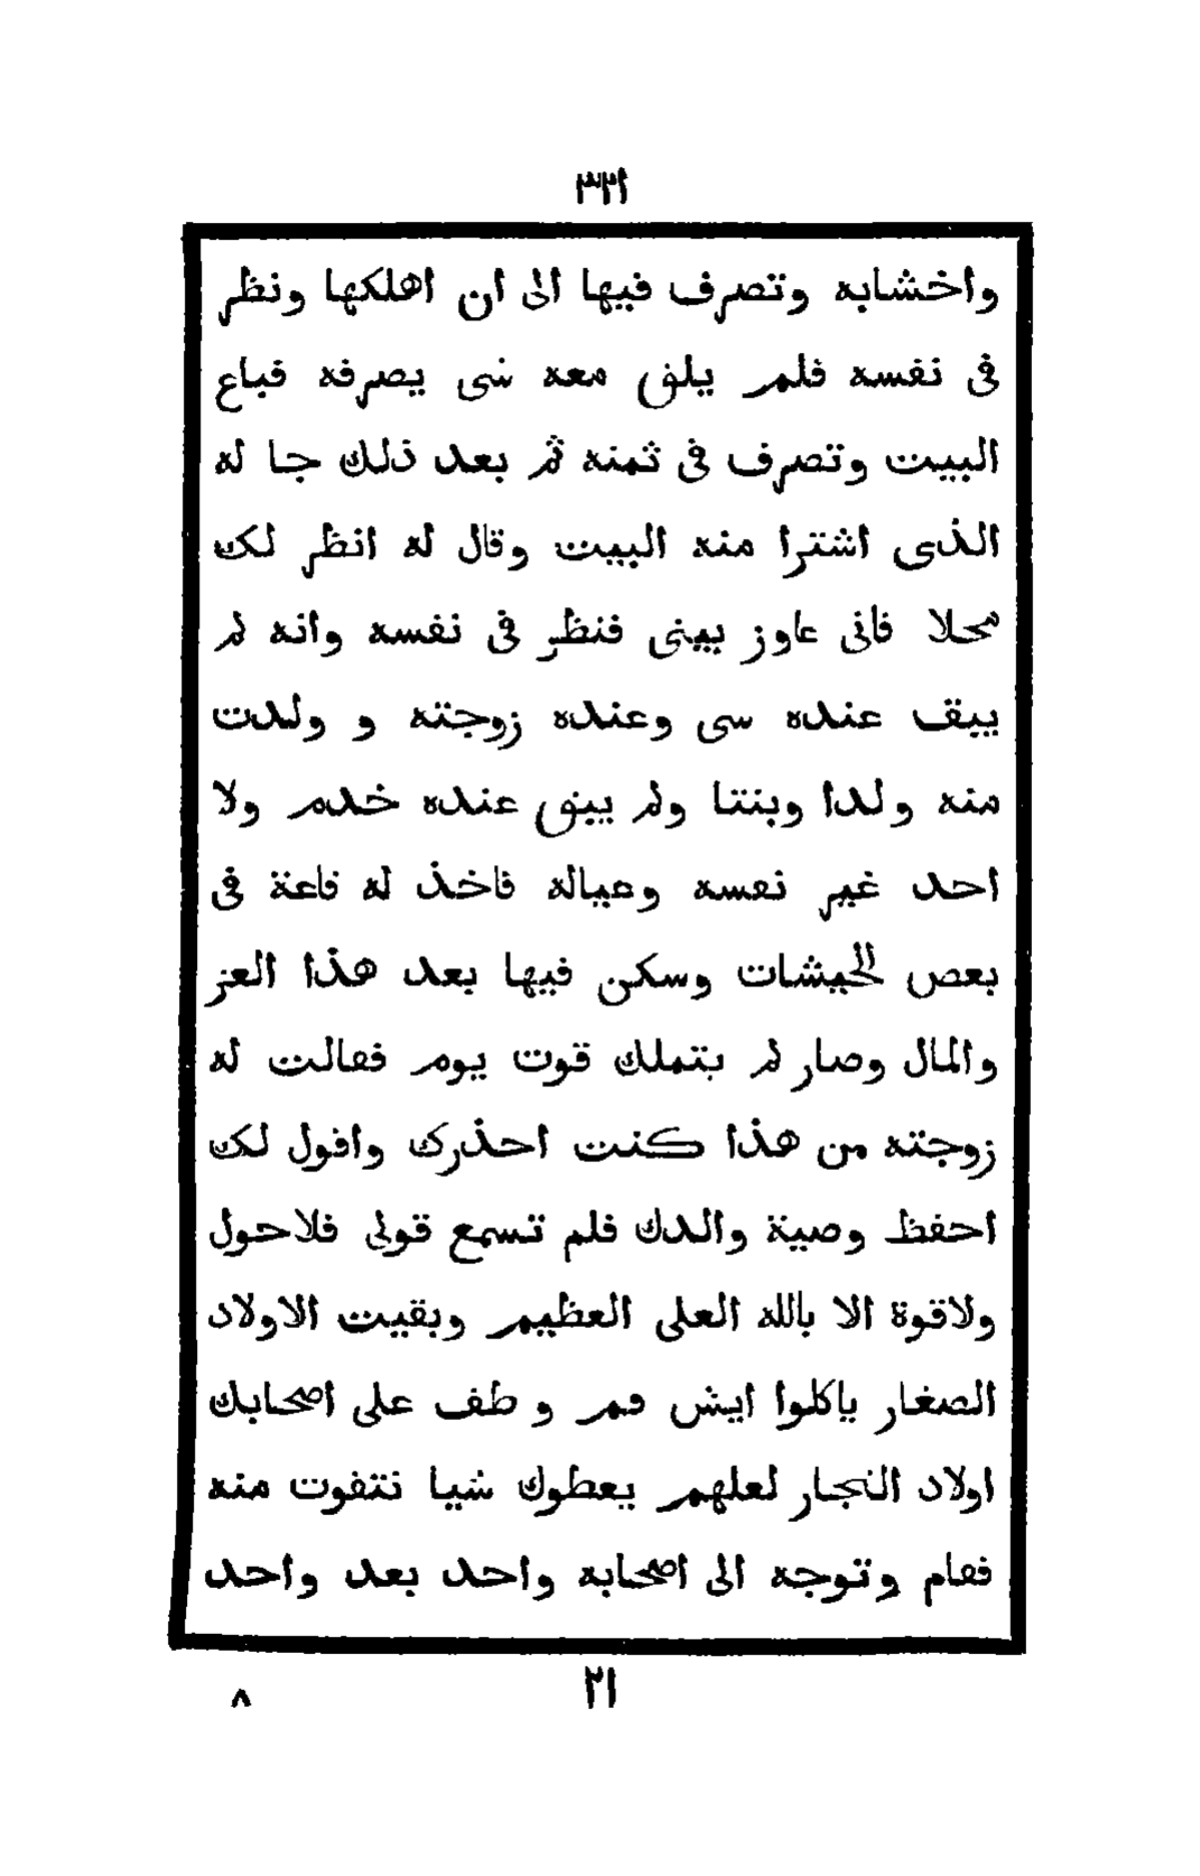 ٣٢١
واخشابه وتصرف فيها الى ان اهلكها ونظر
فى نفسه فلم يلق معه شى يصرفه فباع
البيت وتصرف فى ثمنه ثم بعد ذلك جا له
الذى اشترا منه البيت وقال له انظر لك
محلا فانى عاوز بيتى فنظر فى نفسه وانه لم
يبق عنده سى وعنده زوجته و ولدت
منه ولدا وبنتا ولم يبق عنده خدم ولا
احد غير نفسه وعياله فاخذ له قاعة فى
بعض الحيشات وسكن فيها بعد هذا العز
والمال وصار لم بتملك قوت يوم فقالت له
زوجته من هذا كنت احذرك واقول لك
احفظ وصية والدك فلم تسمع قولى فلاحول
ولاقوة الا بالله العلى العظيم وبقيت الاولاد
الصغار ياكلوا ايش قم و طف على اصحابك
اولاد التجار لعلهم يعطوك شيا نتقوت منه
فقام وتوجه الى اصحابه واحد بعد واحد
٢١
٨